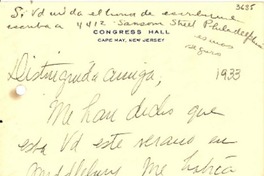 3635
Si Vd olvida el [] de escribirme
escriba a 4412 Sansom Street Philadelphia
es mas
seguro
CONGRESS HALL
CAPE MAY, NEW JERSEY
Distinguida amiga,
1933
Me han dicho que
esta Vd este verano en
Middlebury Me habia